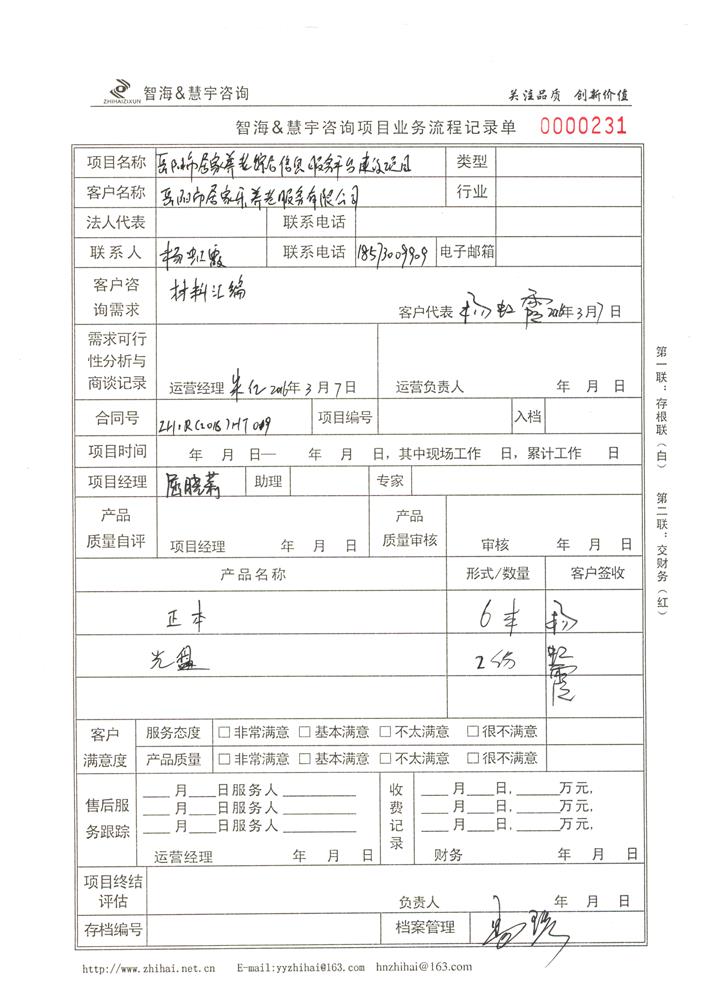 ZHIHAIZIXUN 智海&慧宇咨询 关注品质 创新价值
智海&慧宇咨询项目业务流程记录单 0000231
项目名称 岳阳市居家养老综合信息服务平台建设项目 类型
客户名称 岳阳市居家乐养老服务有限公司 行业
法人代表 联系电话
联系人 杨虹霞 联系电话 18573009909 电子邮箱
客户咨询需求 材料汇编
客户代表 杨虹霞 2016年3月7日
需求可行性分析与商谈记录 运营经理 朱仁 2016年3月7日 运营负责人 年 月 日
合同号 ZH·R(2016)HT009 项目编号 入档
项目时间 年 月 日— 年 月 日，其中现场工作 日，累计工作 日
项目经理 屈晓莉 助理 专家
产品质量自评 项目经理 年 月 日 产品质量审核 审核 年 月 日
产品名称 形式/数量 客户签收
正本 6本 杨
光盘 2份 虹霞
客户满意度 服务态度 □非常满意 □基本满意 □不太满意 □很不满意
产品质量 □非常满意 □基本满意 □不太满意 □很不满意
售后服务跟踪 ___月___日服务人________ 收费记录 ___月___日,_____万元,
___月___日服务人________ ___月___日,_____万元,
___月___日服务人________ ___月___日,_____万元,
运营经理 年 月 日 财务 年 月 日
项目终结评估 负责人 年 月 日
存档编号 档案管理
http://www.zhihai.net.cn E-mail:yyzhihai@163.com hnzhihai@163.com
第一联：存根联（白）
第二联：交财务（红）